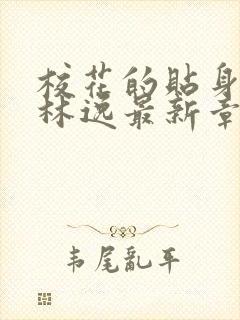 校花的贴身
林逸最新章
韦尾亂平